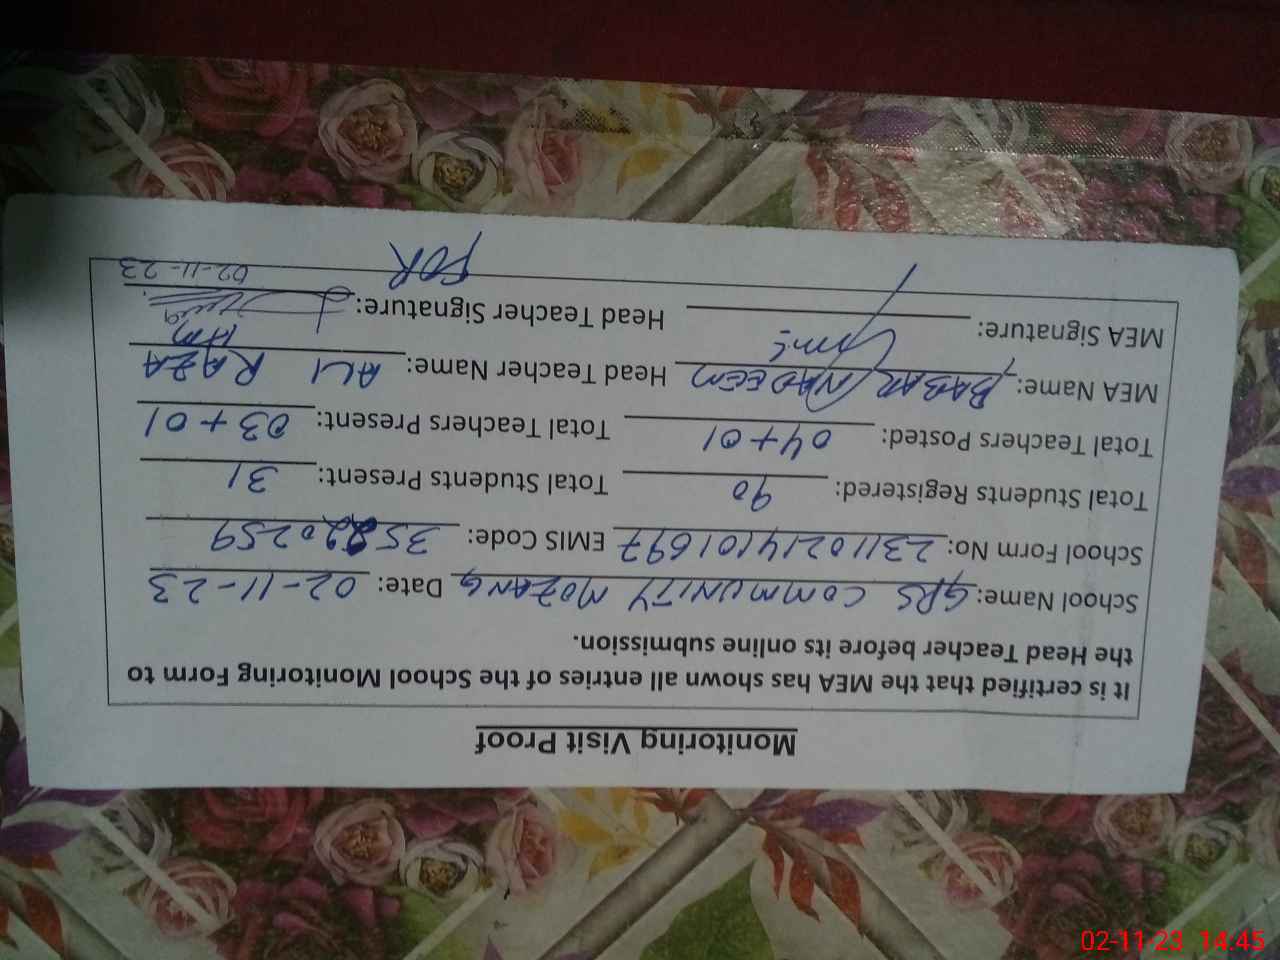 Monitoring Visit Proof
It is certified that the MEA has shown all entries of the School Monitoring Form to
the Head Teacher before its online submission.
School Name: GPS COMMUNITY MOZANG Date: 02-11-23
School Form No: 23110214101697 EMIS Code: 35220259
Total Students Registered: 90 Total Students Present: 31
Total Teachers Posted: 04+01 Total Teachers Present: 03+01
MEA Name: BABAR NADEEM Head Teacher Name: ALI RAZA
HM
MEA Signature: Head Teacher Signature:
FOR 02-11-23
02-11-23 14:45